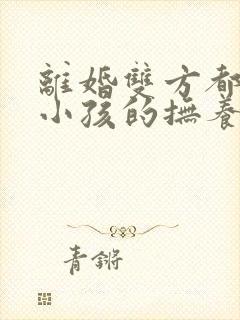 離婚雙方都
小孩的撫養
青鏘